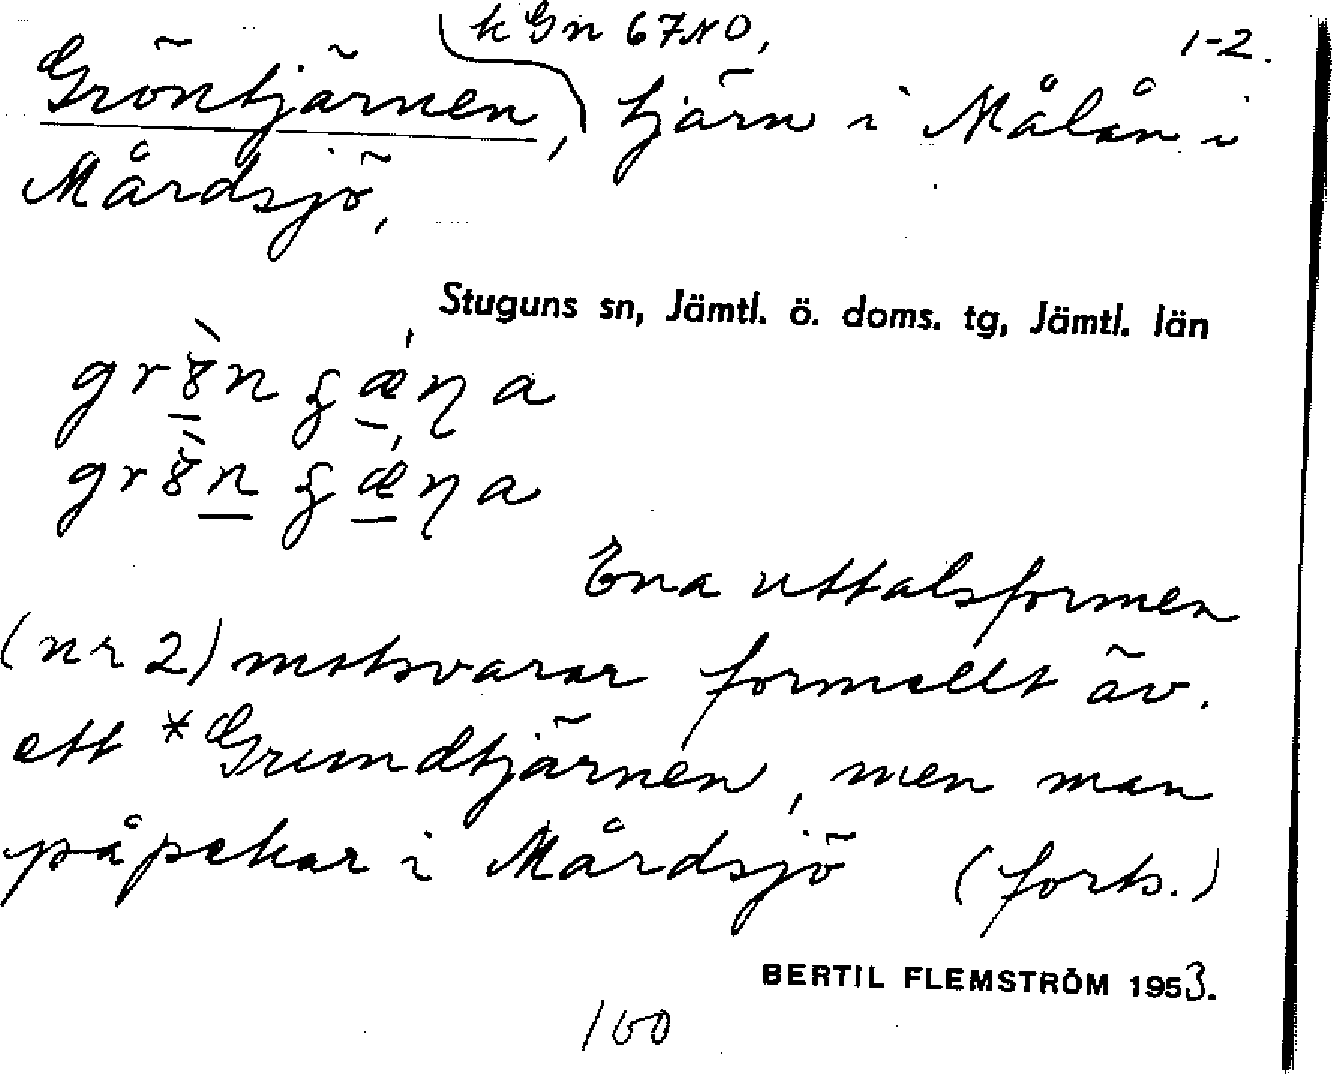 kGn 67NO,
1-2.
Gröntjärnen, tjärn i Målån i
Mårdsjö,
Stuguns sn, Jämtl. ö. doms. tg, Jämtl. län
Ena uttalsformen
(nr 2) motsvarar formellt äv.
ett *Grundtjärnen, men man
påpekar i Mårdsjö (forts.)
BERTIL FLEMSTRÖM 1953.
100